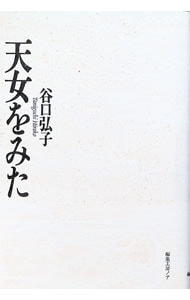 天女をみた
谷口弘子
Taniguchi Hiroko
編集工房ノア